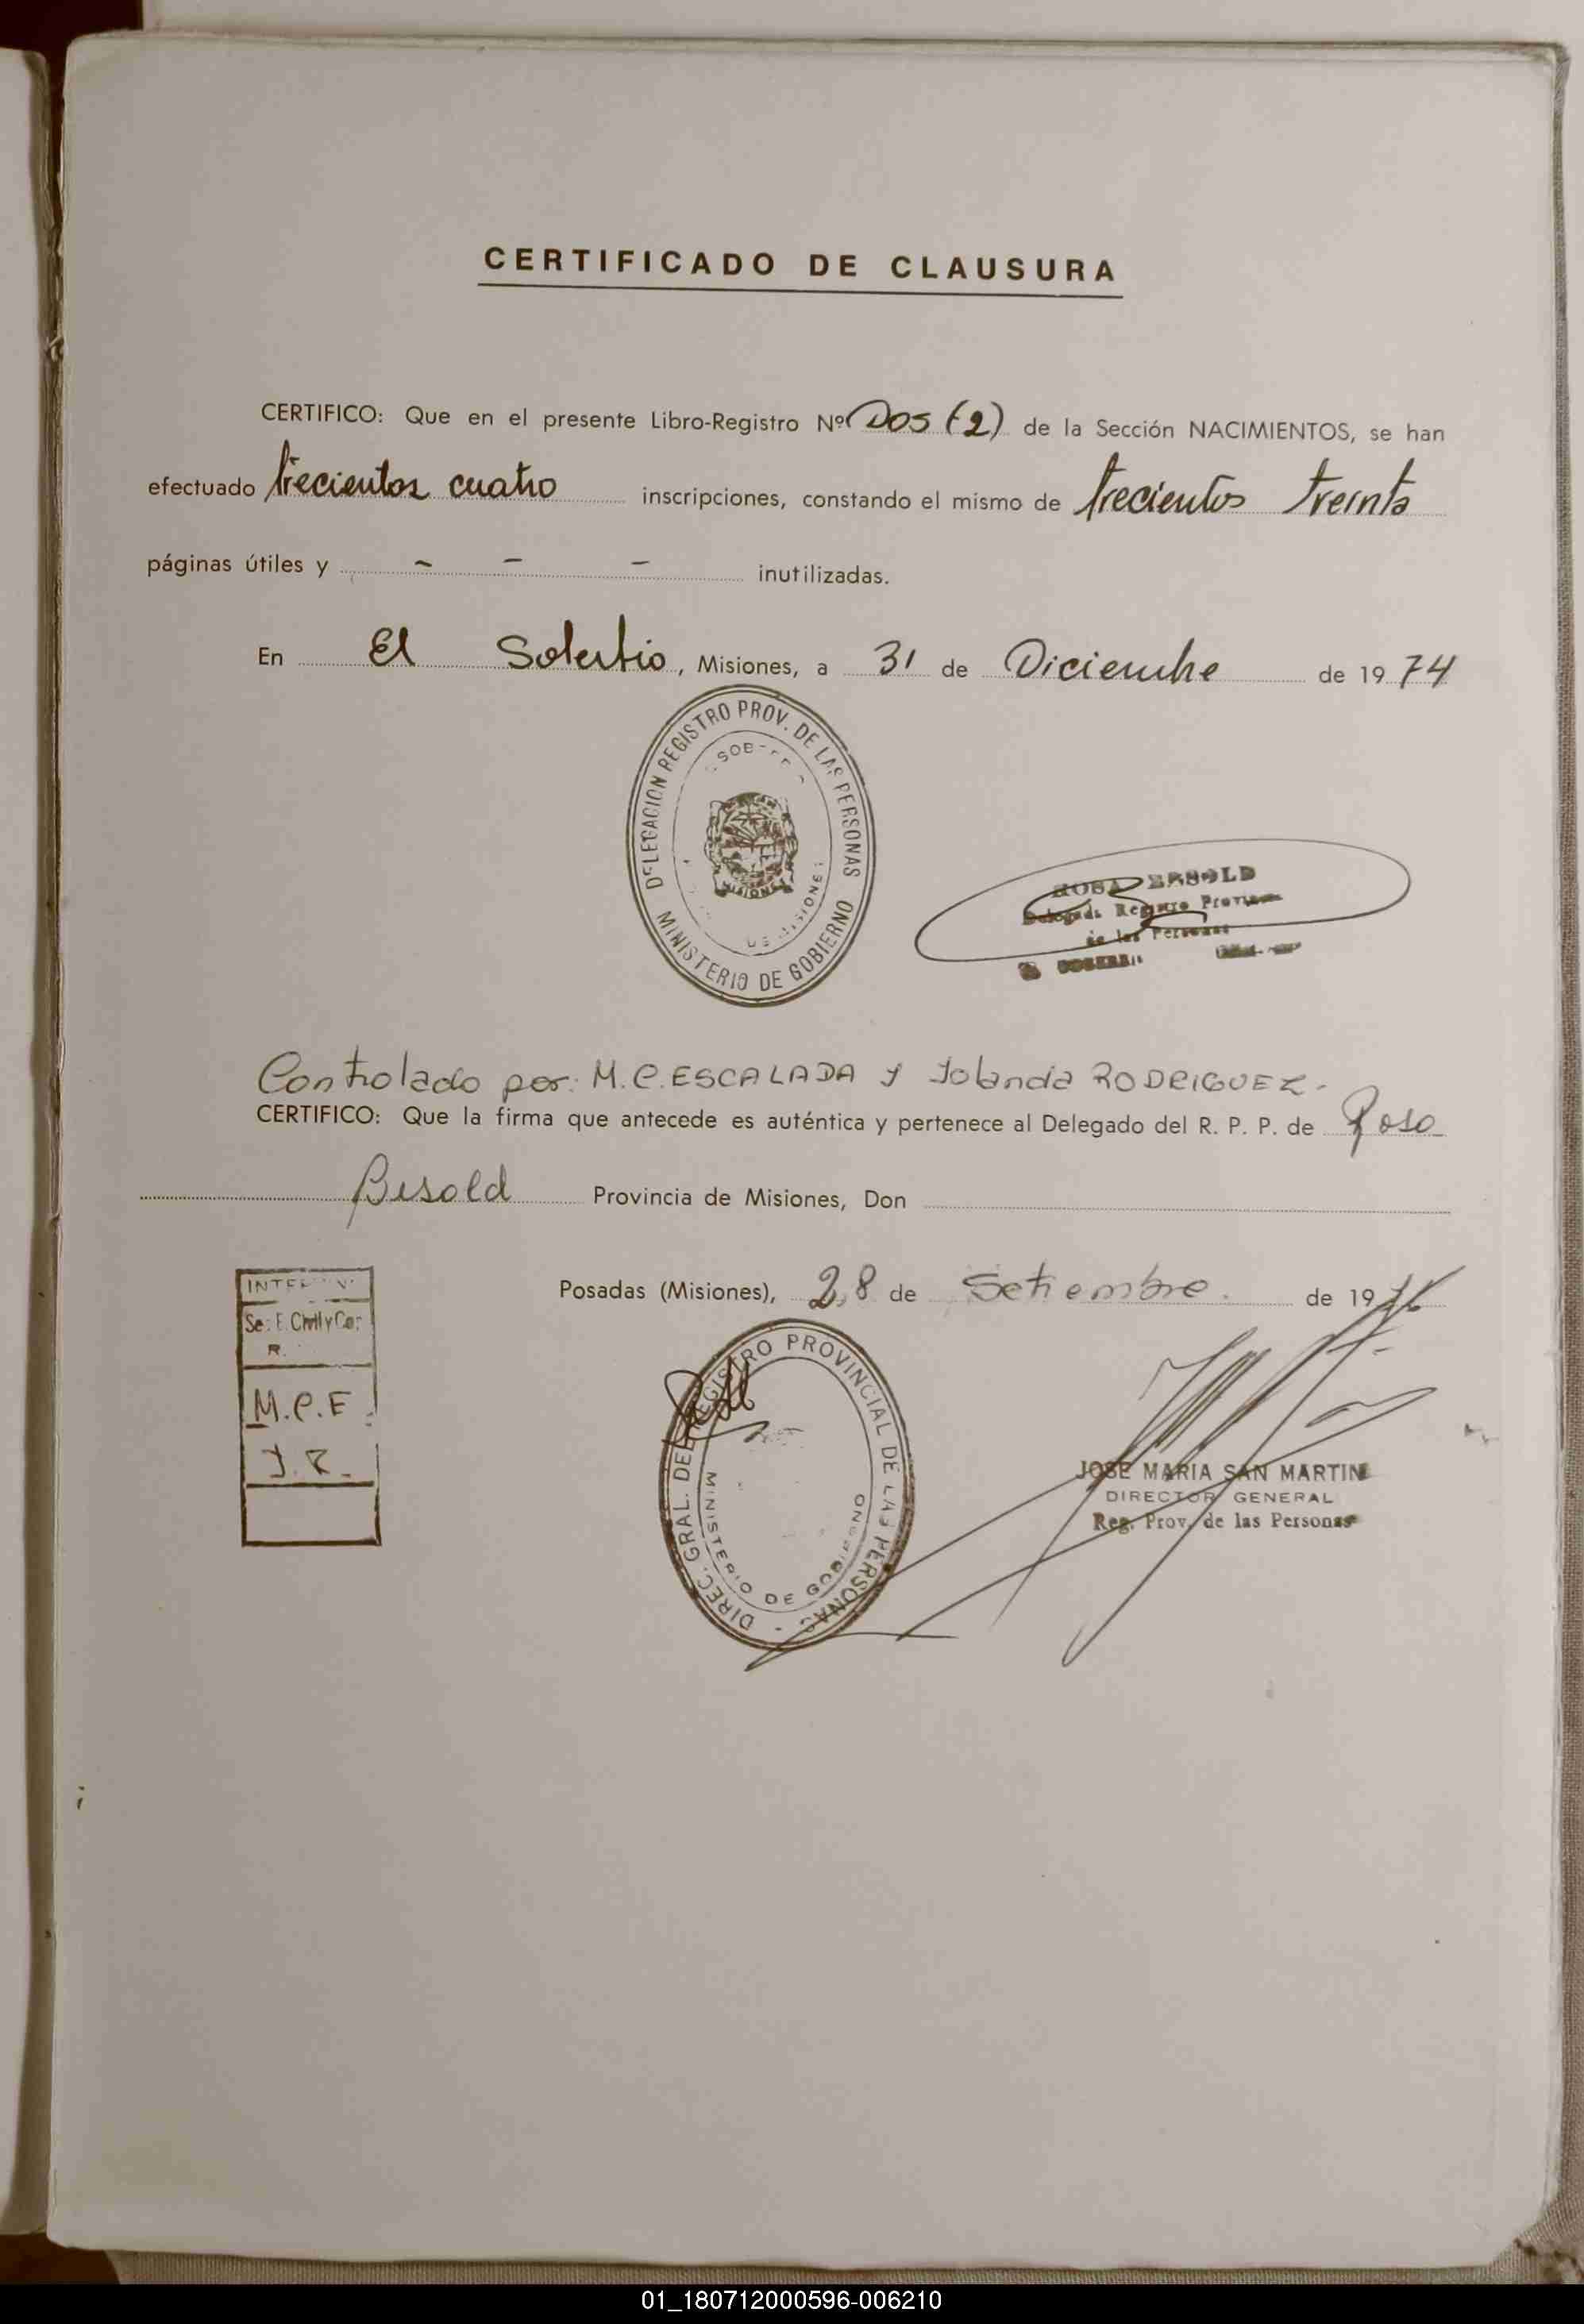 CERTIFICADO DE CLAUSURA
CERTIFICO: Que en el presente Libro-Registro Nº Dos (2) de la Sección NACIMIENTOS, se han
efectuado trecientos cuatro inscripciones, constando el mismo de trecientos treinta
páginas útiles y - - - inutilizadas.
En El Sobertio, Misiones, a 31 de Diciembre de 1974
DELEGACION REGISTRO PROV. DE LAS PERSONAS
MINISTERIO DE GOBIERNO
MISIONES
ROSA BESOLD
Delegada Registro Provincial
de las Personas
Controlado por: M.C. ESCALADA y Yolanda RODRIGUEZ.-
CERTIFICO: Que la firma que antecede es auténtica y pertenece al Delegado del R. P. P. de Rosa
Besold Provincia de Misiones, Don
Posadas (Misiones), 28 de Setiembre. de 1976
Sec. E. Civil y Cap.
M.C.E
Y.R.
DIREC. GRAL. DEL REGISTRO PROVINCIAL DE LAS PERSONAS -
MINISTERIO DE GOBIERNO
JOSE MARIA SAN MARTIN
DIRECTOR GENERAL
Reg. Prov. de las Personas
01_180712000596-006210